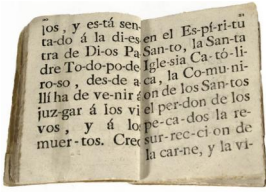 jos, y es-tá sen-
ta-do á la di-es
tra de Di-os Pa
dre To-do-po-de
ro-so, des-de a
llí ha de ve-nir á
juz-gar á los vi
vos, y á lo
muer-tos. Creo
en el Es-pí-ri-tu
San-to, la San-ta
Igle-sia Ca-tó-li-
ca, la Co-mu-ni-
on de los San-tos
el per-don de los
pe-ca-dos la re-
sur-rec-ci on de
la car-ne, y la vi-